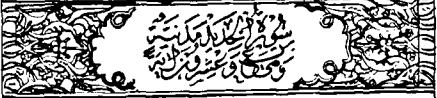 سورة الحديد مدنية
وهي تسع وعشرون آية